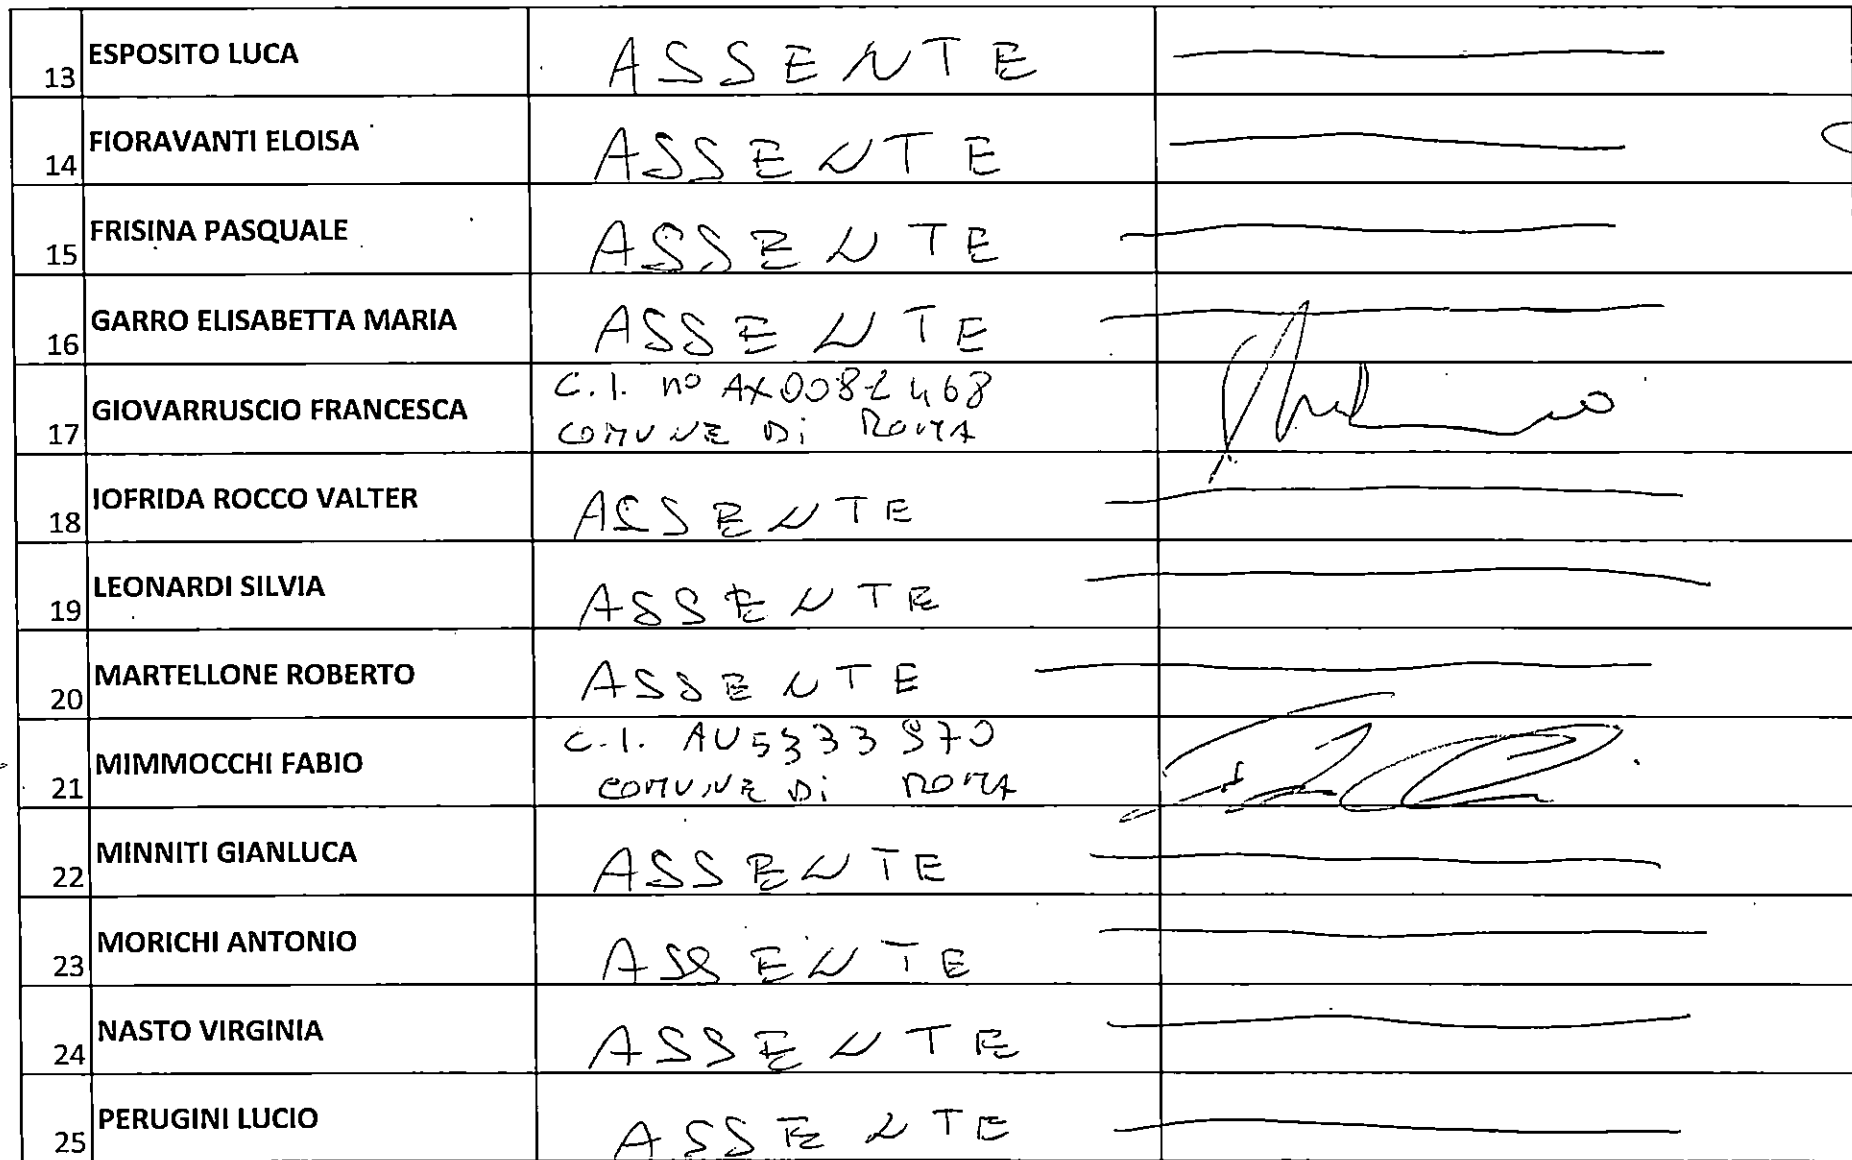 13 ESPOSITO LUCA ASSENTE
14 FIORAVANTI ELOISA ASSENTE
15 FRISINA PASQUALE ASSENTE
16 GARRO ELISABETTA MARIA ASSENTE
C.I. nº AX0082468
17 GIOVARRUSCIO FRANCESCA
COMUNE Di ROMA
18 IOFRIDA ROCCO VALTER ASSENTE
19 LEONARDI SILVIA ASSENTE
20 MARTELLONE ROBERTO ASSENTE
C.I. AU5333970
21 MIMMOCCHI FABIO
COMUNE Di ROMA
22 MINNITI GIANLUCA ASSENTE
23 MORICHI ANTONIO ASSENTE
24 NASTO VIRGINIA ASSENTE
25 PERUGINI LUCIO ASSENTE